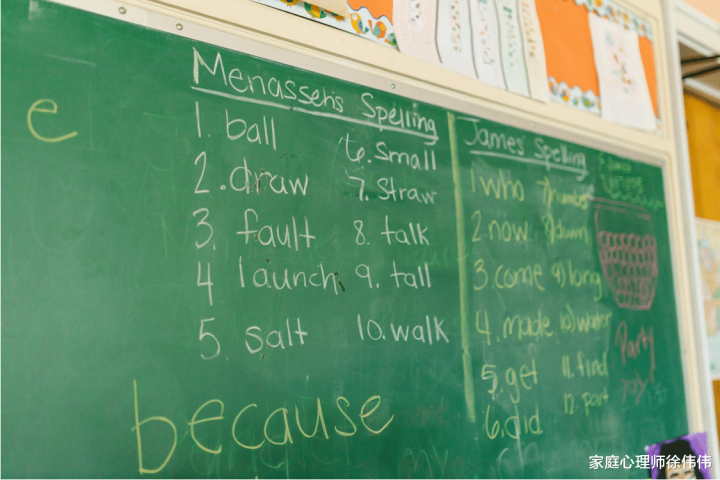 e
Menasseh's Spelling
1. ball
2. draw
3. fault
4 launch
5. salt
6. small
7. straw
8. talk
9. tall
10. walk
because
James' Spelling
1 who
2. now
3. come
4. made
5. get
6. did
7) number
8) down
9) long
10) water
11. find
12. part
Party
家庭心理师徐伟伟